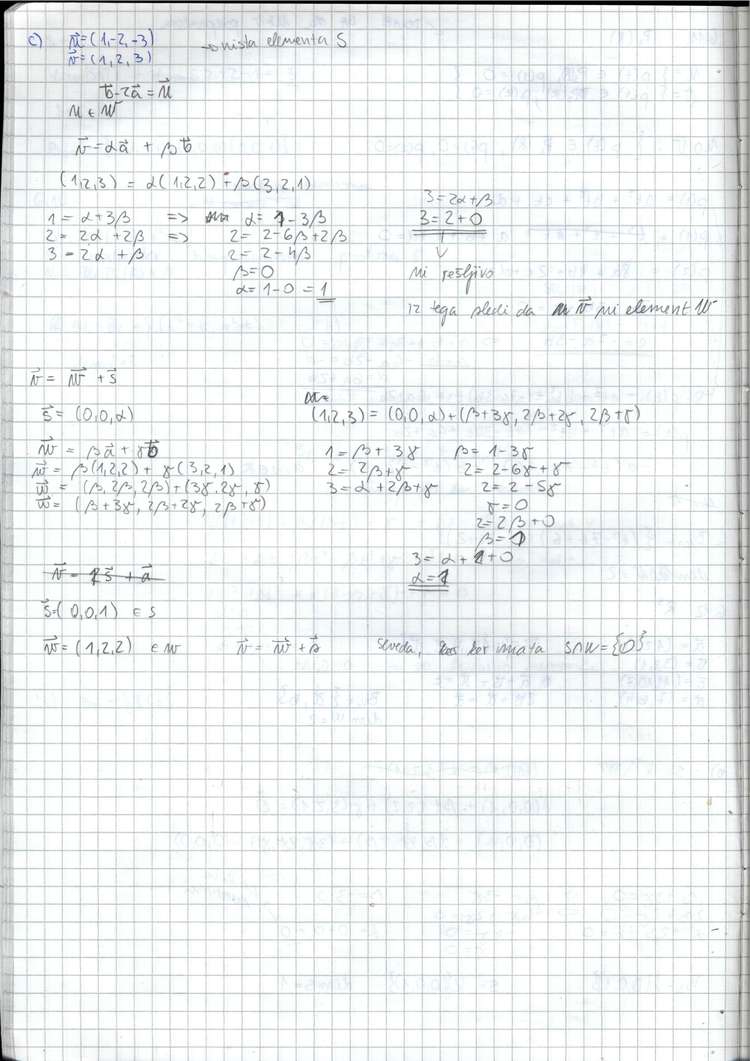 c) u⃗=(1,-2,-3) → nista elementa S
v⃗=(1,2,3)
b⃗-2a⃗=u⃗
u ∈ W
v⃗=αa⃗ + βb⃗
(1,2,3) = α(1,2,2)+β(3,2,1)
1 = α+3β => α= 1-3β
2 = 2α+2β => 2=2-6β+2β
3 = 2α+β 2=2-4β
β=0
α=1-0=1
3=2α+β
3=2+0
ni rešljivo
iz tega sledi da v⃗ ni element W
v⃗= w⃗ + s⃗
s⃗ = (0,0,α)
(1,2,3) = (0,0,α)+(β+3γ, 2β+2γ, 2β+γ)
w⃗ = βa⃗+γb⃗
w⃗ = β(1,2,2)+ γ(3,2,1)
w⃗ = (β, 2β, 2β)+(3γ, 2γ, γ)
w⃗ = (β+3γ, 2β+2γ, 2β+γ)
1=β+3γ β=1-3γ
2=2β+γ 2=2-6γ+γ
3=α+2β+γ 2=2-5γ
γ=0
2=2β+0
β=1
3=α+2+0
α=1
v⃗ = 1s⃗ + a⃗
s⃗=(0,0,1) ∈ S
w⃗=(1,2,2) ∈ W v⃗=w⃗+s⃗ seveda, ker imata S∩W={0}